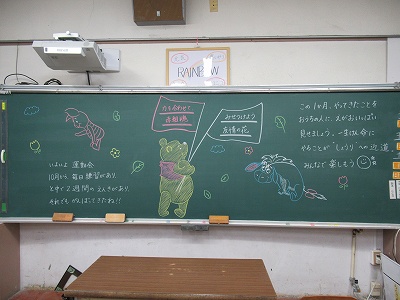 RAINBOW
力を合わせて
みせつけよう
友情の花
いよいよ 運動会
10月から 毎日 練習があり、
とちゅう 2週間の えんきがあり、
それでも がんばってきたね!!
この1か月、やってきたことを
おうちの人に、えがおいっぱい
見せましょう。一生けん命に
やることが しょうり への 近道
みんなで 楽しもう